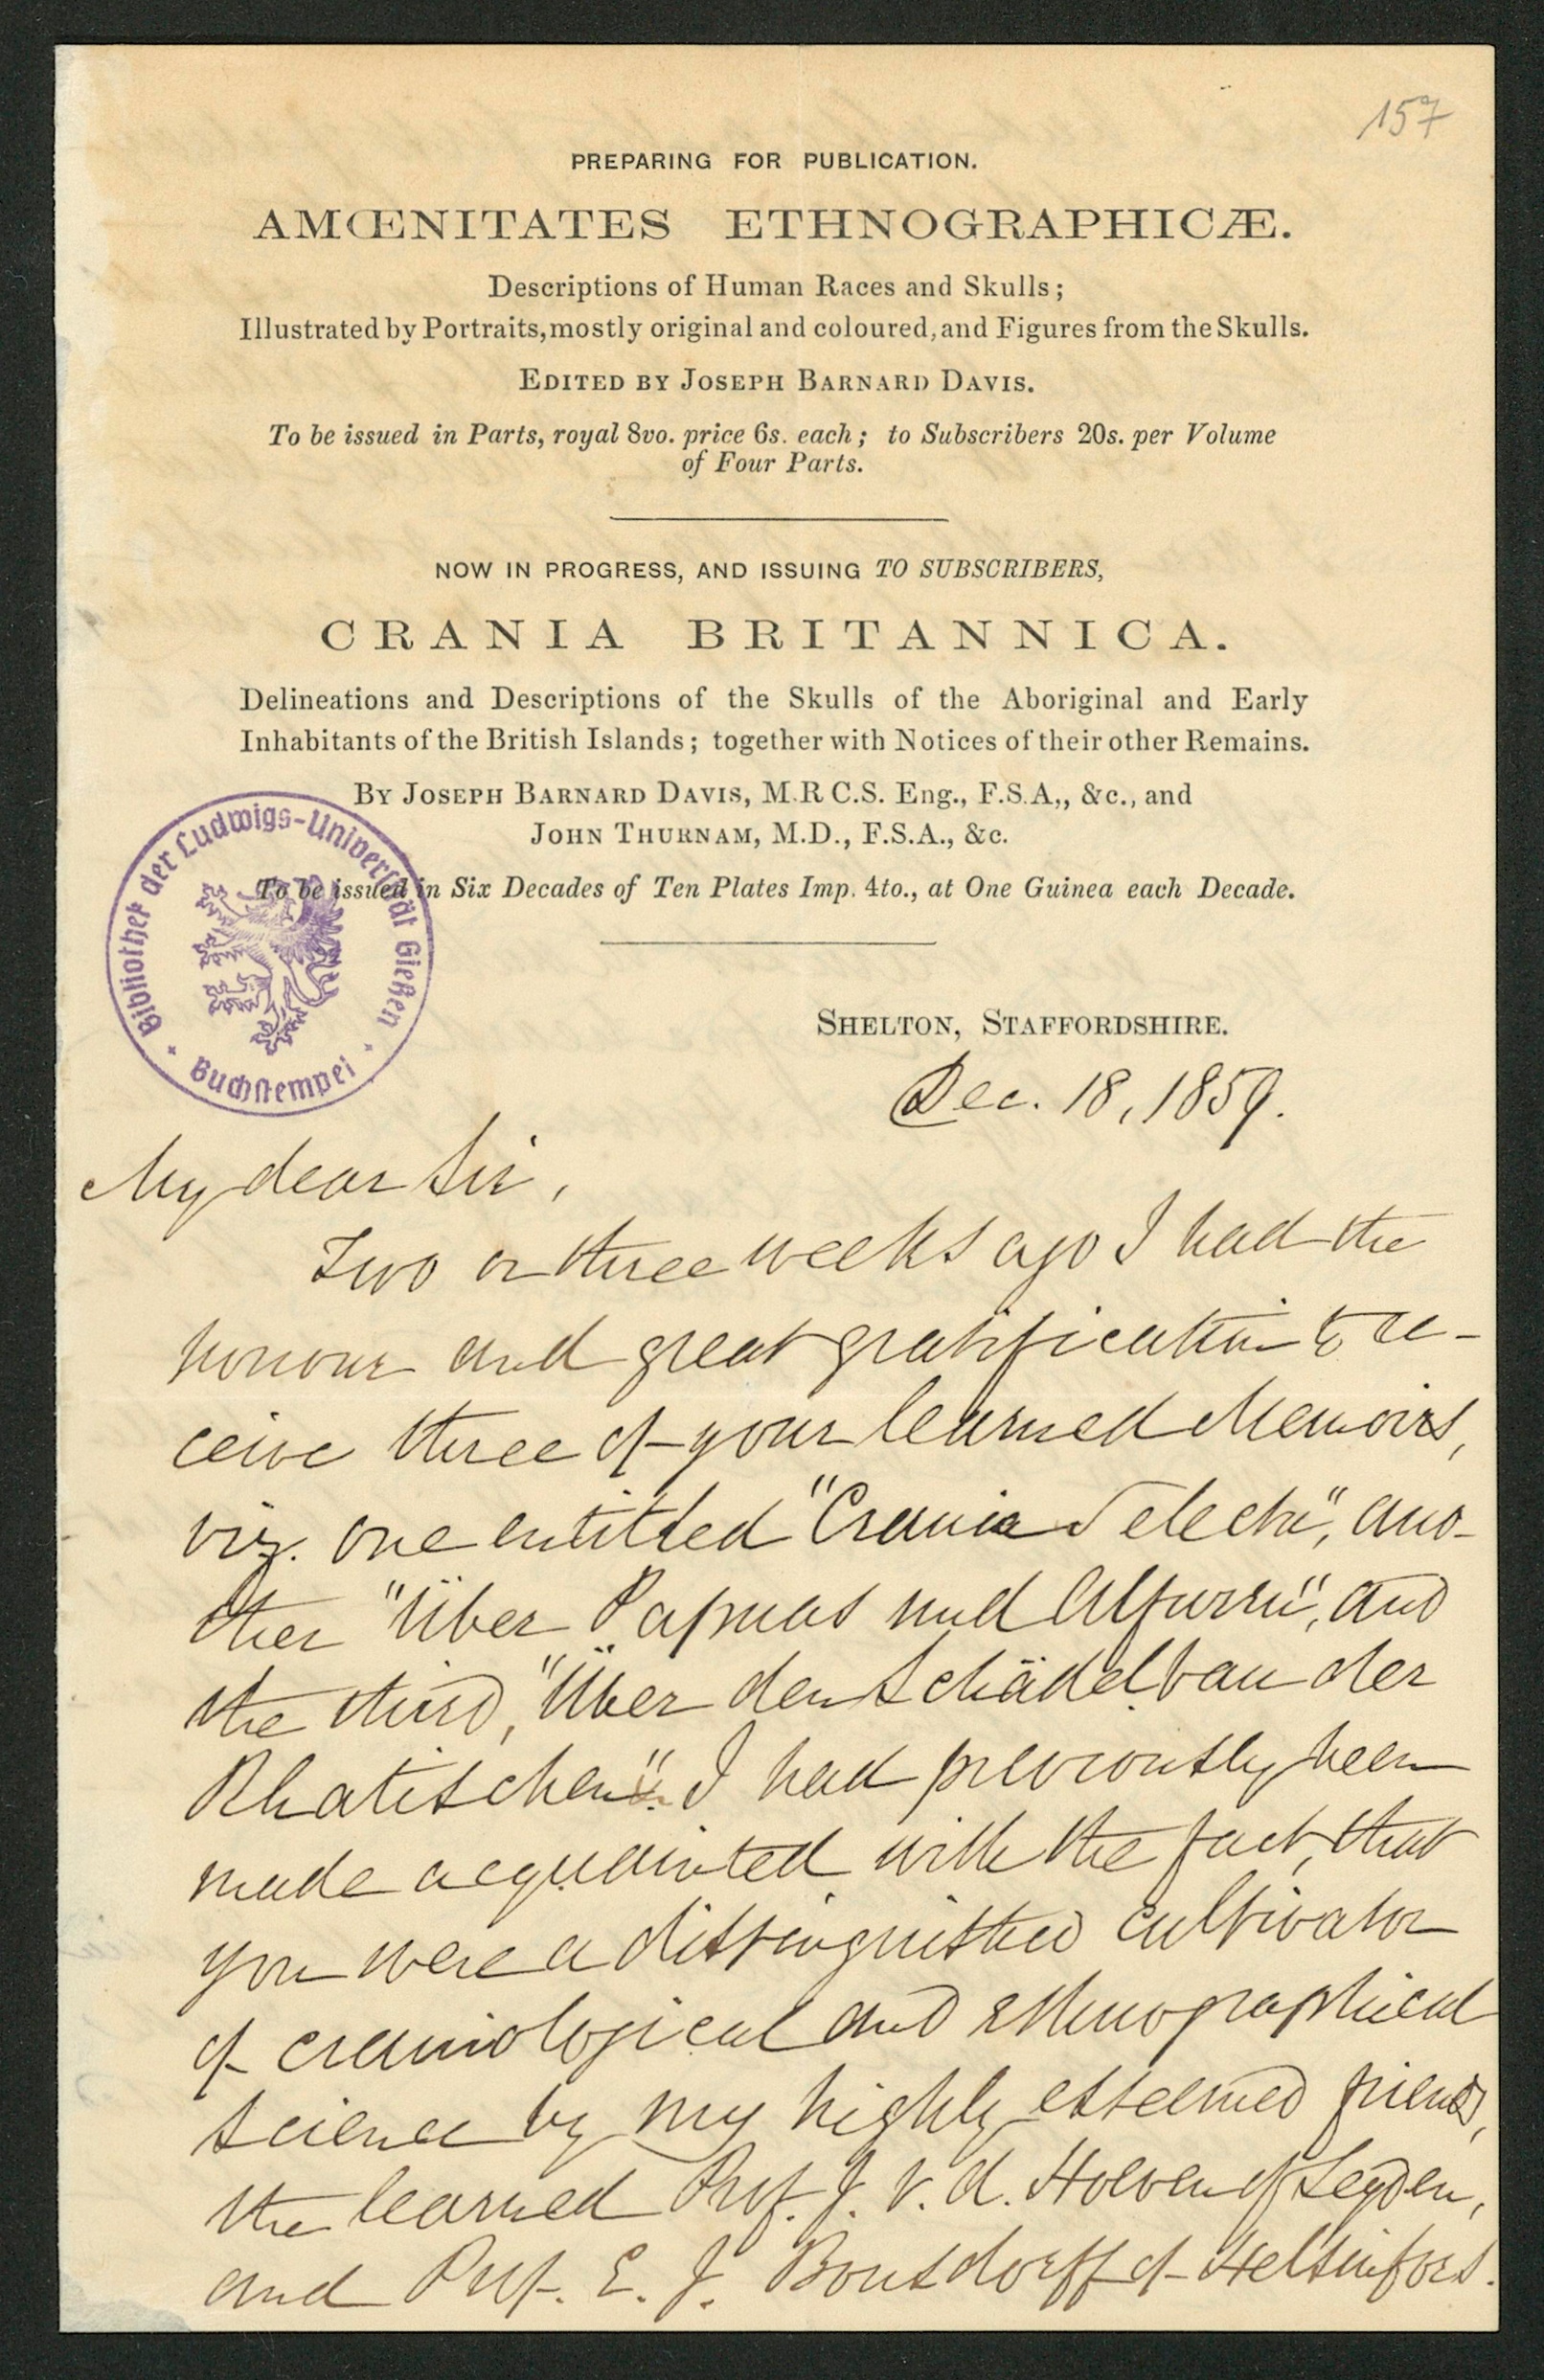 157
PREPARING FOR PUBLICATION.
AMŒNITATES ETHNOGRAPHICÆ.
Descriptions of Human Races and Skulls;
Illustrated by Portraits, mostly original and coloured, and Figures from the Skulls.
EDITED BY JOSEPH BARNARD DAVIS.
To be issued in Parts, royal 8vo. price 6s. each; to Subscribers 20s. per Volume
of Four Parts.
NOW IN PROGRESS, AND ISSUING TO SUBSCRIBERS,
CRANIA BRITANNICA.
Delineations and Descriptions of the Skulls of the Aboriginal and Early
Inhabitants of the British Islands; together with Notices of their other Remains.
BY JOSEPH BARNARD DAVIS, M.R C.S. Eng., F.S.A,, &c., and
JOHN THURNAM, M.D., F.S.A., &c.
To be issued in Six Decades of Ten Plates Imp. 4to., at One Guinea each Decade.
Bibliothek der Ludwigs-Universität Gießen
Buchstempel
SHELTON, STAFFORDSHIRE.
Dec. 18, 1859.
My dear Sir,
Two or three weeks ago I had the
honour and great gratification to re-
ceive three of your learned Memoirs,
viz. one entitled "Crania Selecta", ano-
ther "Über Papuas und Alfuren", and
the third, "Über den Schädelbau der
Rhatischen". I had previously been
made acquainted with the fact, that
you were a distinguished cultivator
of craniological and ethnographical
science by my highly esteemed friends,
the learned Prof. J. V. d. Hoeven of Leyden,
and Prof. E. J. Bonsdorff of Helsinfors.